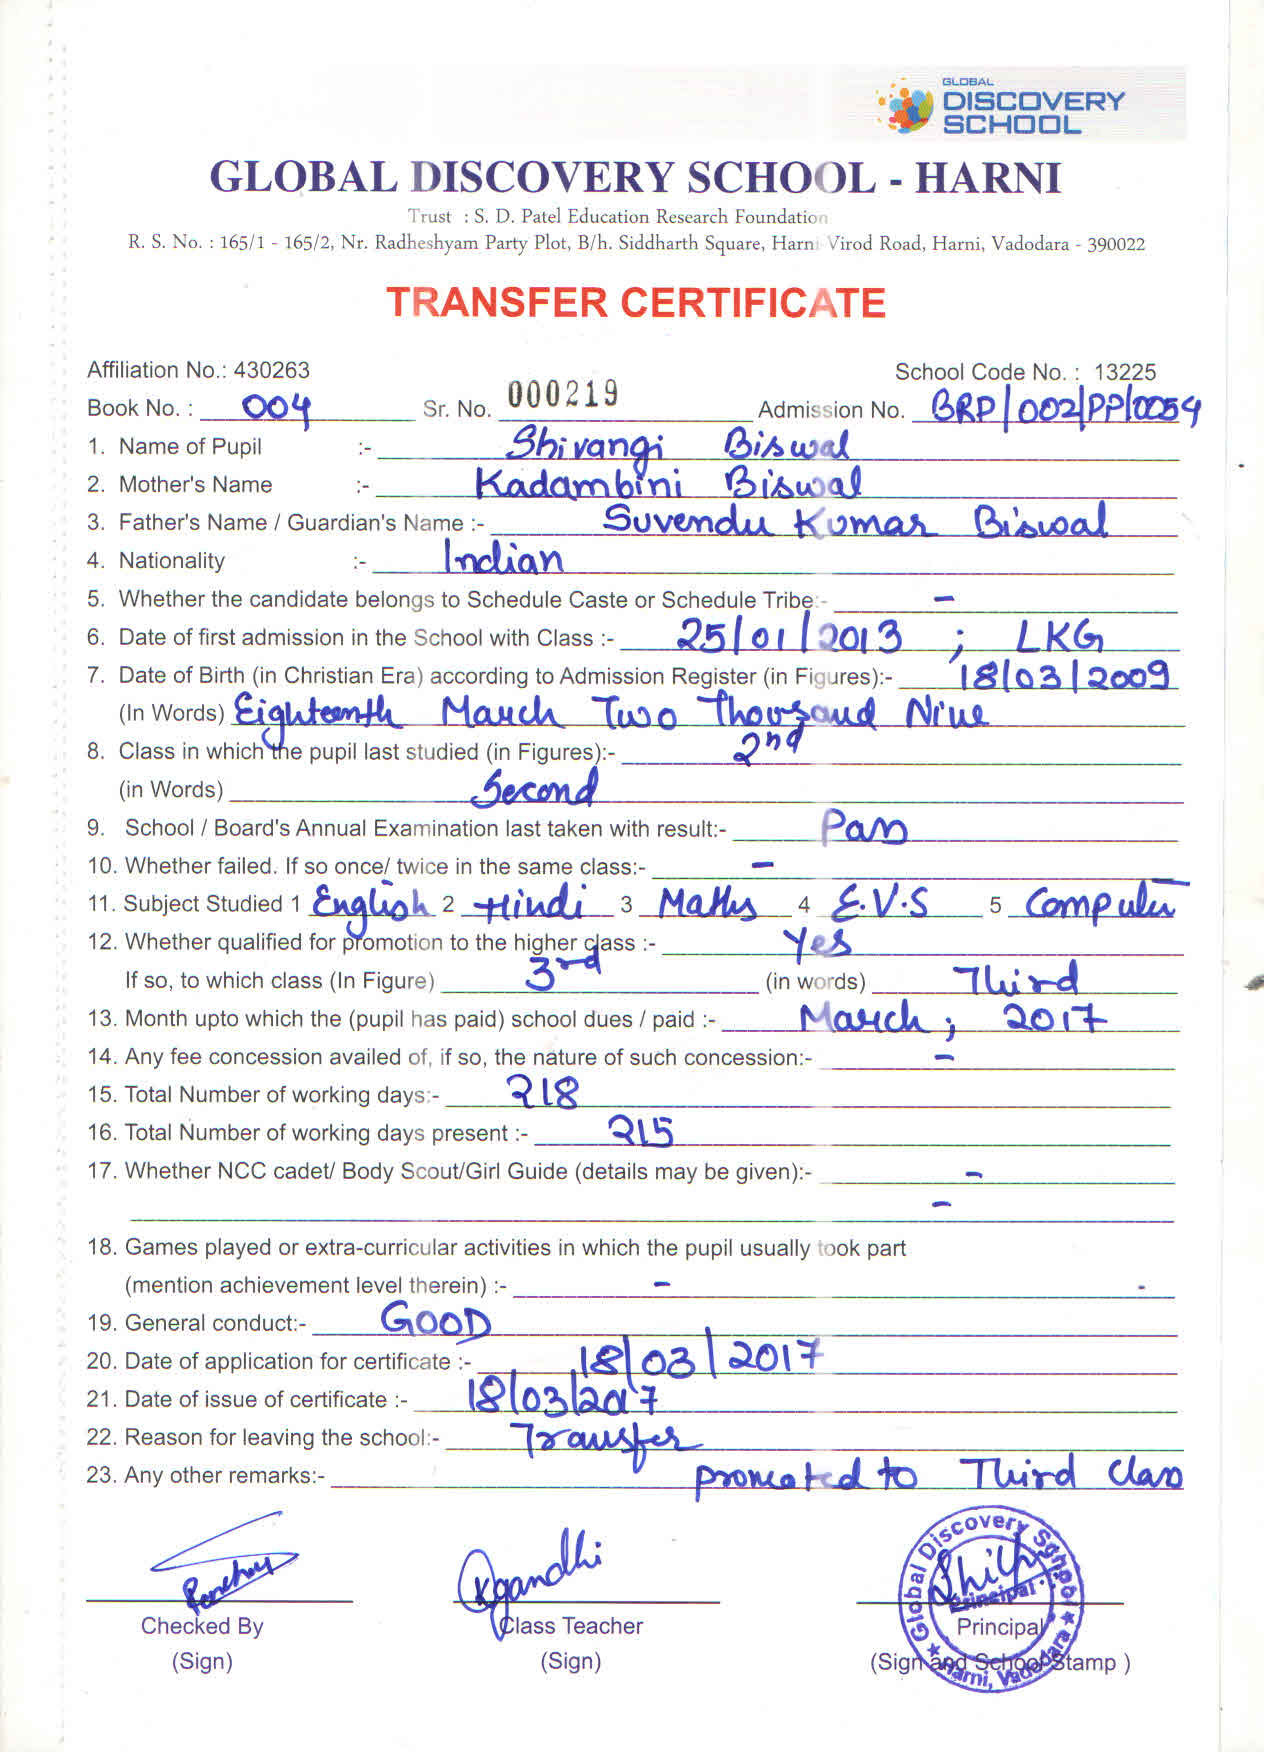 GLOBAL
DISCOVERY
SCHOOL
GLOBAL DISCOVERY SCHOOL - HARNI
Trust : S. D. Patel Education Research Foundation
R. S. No. : 165/1 - 165/2, Nr. Radheshyam Party Plot, B/h. Siddharth Square, Harni Virod Road, Harni, Vadodara - 390022
TRANSFER CERTIFICATE
Affiliation No.: 430263 School Code No. : 13225
Book No. : 004 Sr. No. 000219 Admission No. BRP/002/PP/0054
1. Name of Pupil :- Shivangi Biswal
2. Mother's Name :- Kadambini Biswal
3. Father's Name / Guardian's Name :- Suvendu Kumar Biswal
4. Nationality :- Indian
5. Whether the candidate belongs to Schedule Caste or Schedule Tribe:- -
6. Date of first admission in the School with Class :- 25/01/2013 ; LKG
7. Date of Birth (in Christian Era) according to Admission Register (in Figures):- 18/03/2009
(In Words) Eighteenth March Two Thousand Nine
8. Class in which the pupil last studied (in Figures):- 2nd
(in Words) Second
9. School / Board's Annual Examination last taken with result:- Pass
10. Whether failed. If so once/ twice in the same class:- -
11. Subject Studied 1 English 2 Hindi 3 Maths 4 E.V.S 5 Computer
12. Whether qualified for promotion to the higher class :- Yes
If so, to which class (In Figure) 3rd (in words) Third
13. Month upto which the (pupil has paid) school dues / paid :- March ; 2017
14. Any fee concession availed of, if so, the nature of such concession:- -
15. Total Number of working days:- 218
16. Total Number of working days present :- 215
17. Whether NCC cadet/ Body Scout/Girl Guide (details may be given):- -
-
18. Games played or extra-curricular activities in which the pupil usually took part
(mention achievement level therein) :- -
19. General conduct:- GOOD
20. Date of application for certificate :- 18/03/2017
21. Date of issue of certificate :- 18/03/2017
22. Reason for leaving the school:- Transfer
23. Any other remarks:- promoted to Third class
Kgandhi
Global Discovery School
Principal
Harni, Vadodara
Checked By Class Teacher Principal
(Sign) (Sign) (Sign and School Stamp )